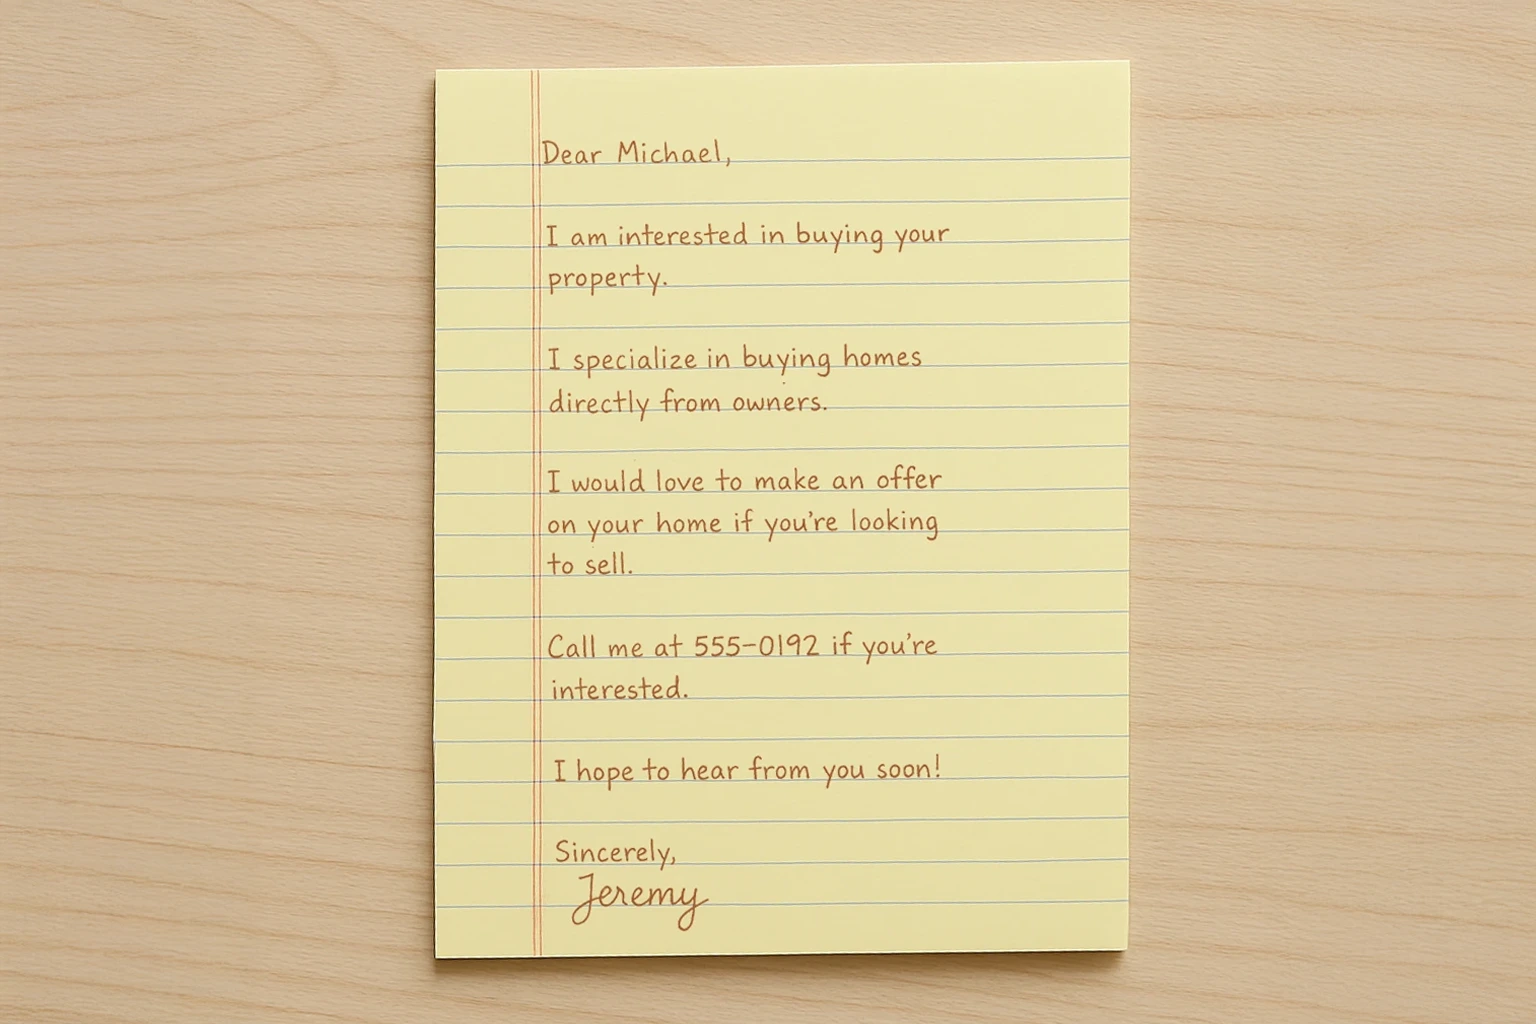 Dear Michael,
I am interested in buying your
property.
I specialize in buying homes
directly from owners.
I would love to make an offer
on your home if you're looking
to sell.
Call me at 555-0192 if you're
interested.
I hope to hear from you soon!
Sincerely,
Jeremy